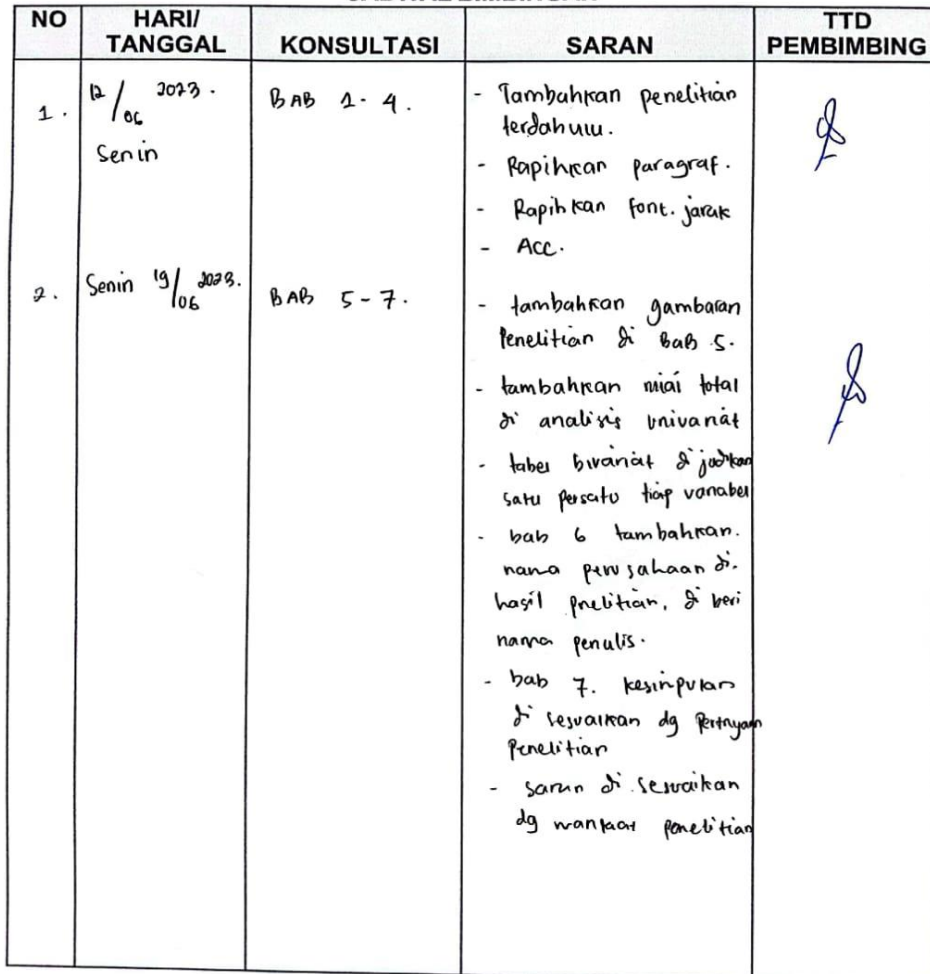 NO
HARI/
TANGGAL
KONSULTASI
SARAN
TTD
PEMBIMBING
1.
12/06 2023.
Senin
BAB 1-4.
- Tambahkan penelitian
terdahulu.
- Rapihkan paragraf.
- Rapihkan font. jarak
- Acc.
2.
Senin 19/06 2023.
BAB 5-7.
- tambahkan gambaran
Penelitian di BaB 5.
- tambahkan nilai total
di analisis univariat
- tabel bivariat dijadikan
satu persatu tiap variabel
- bab 6 tambahkan.
nama perusahaan di.
hasil pnelitian, di beri
nama penulis.
- bab 7. kesimpulan
di sesuaikan dg Pertnyaan
Penelitian
- saran di sesuaikan
dg manfaat penelitian